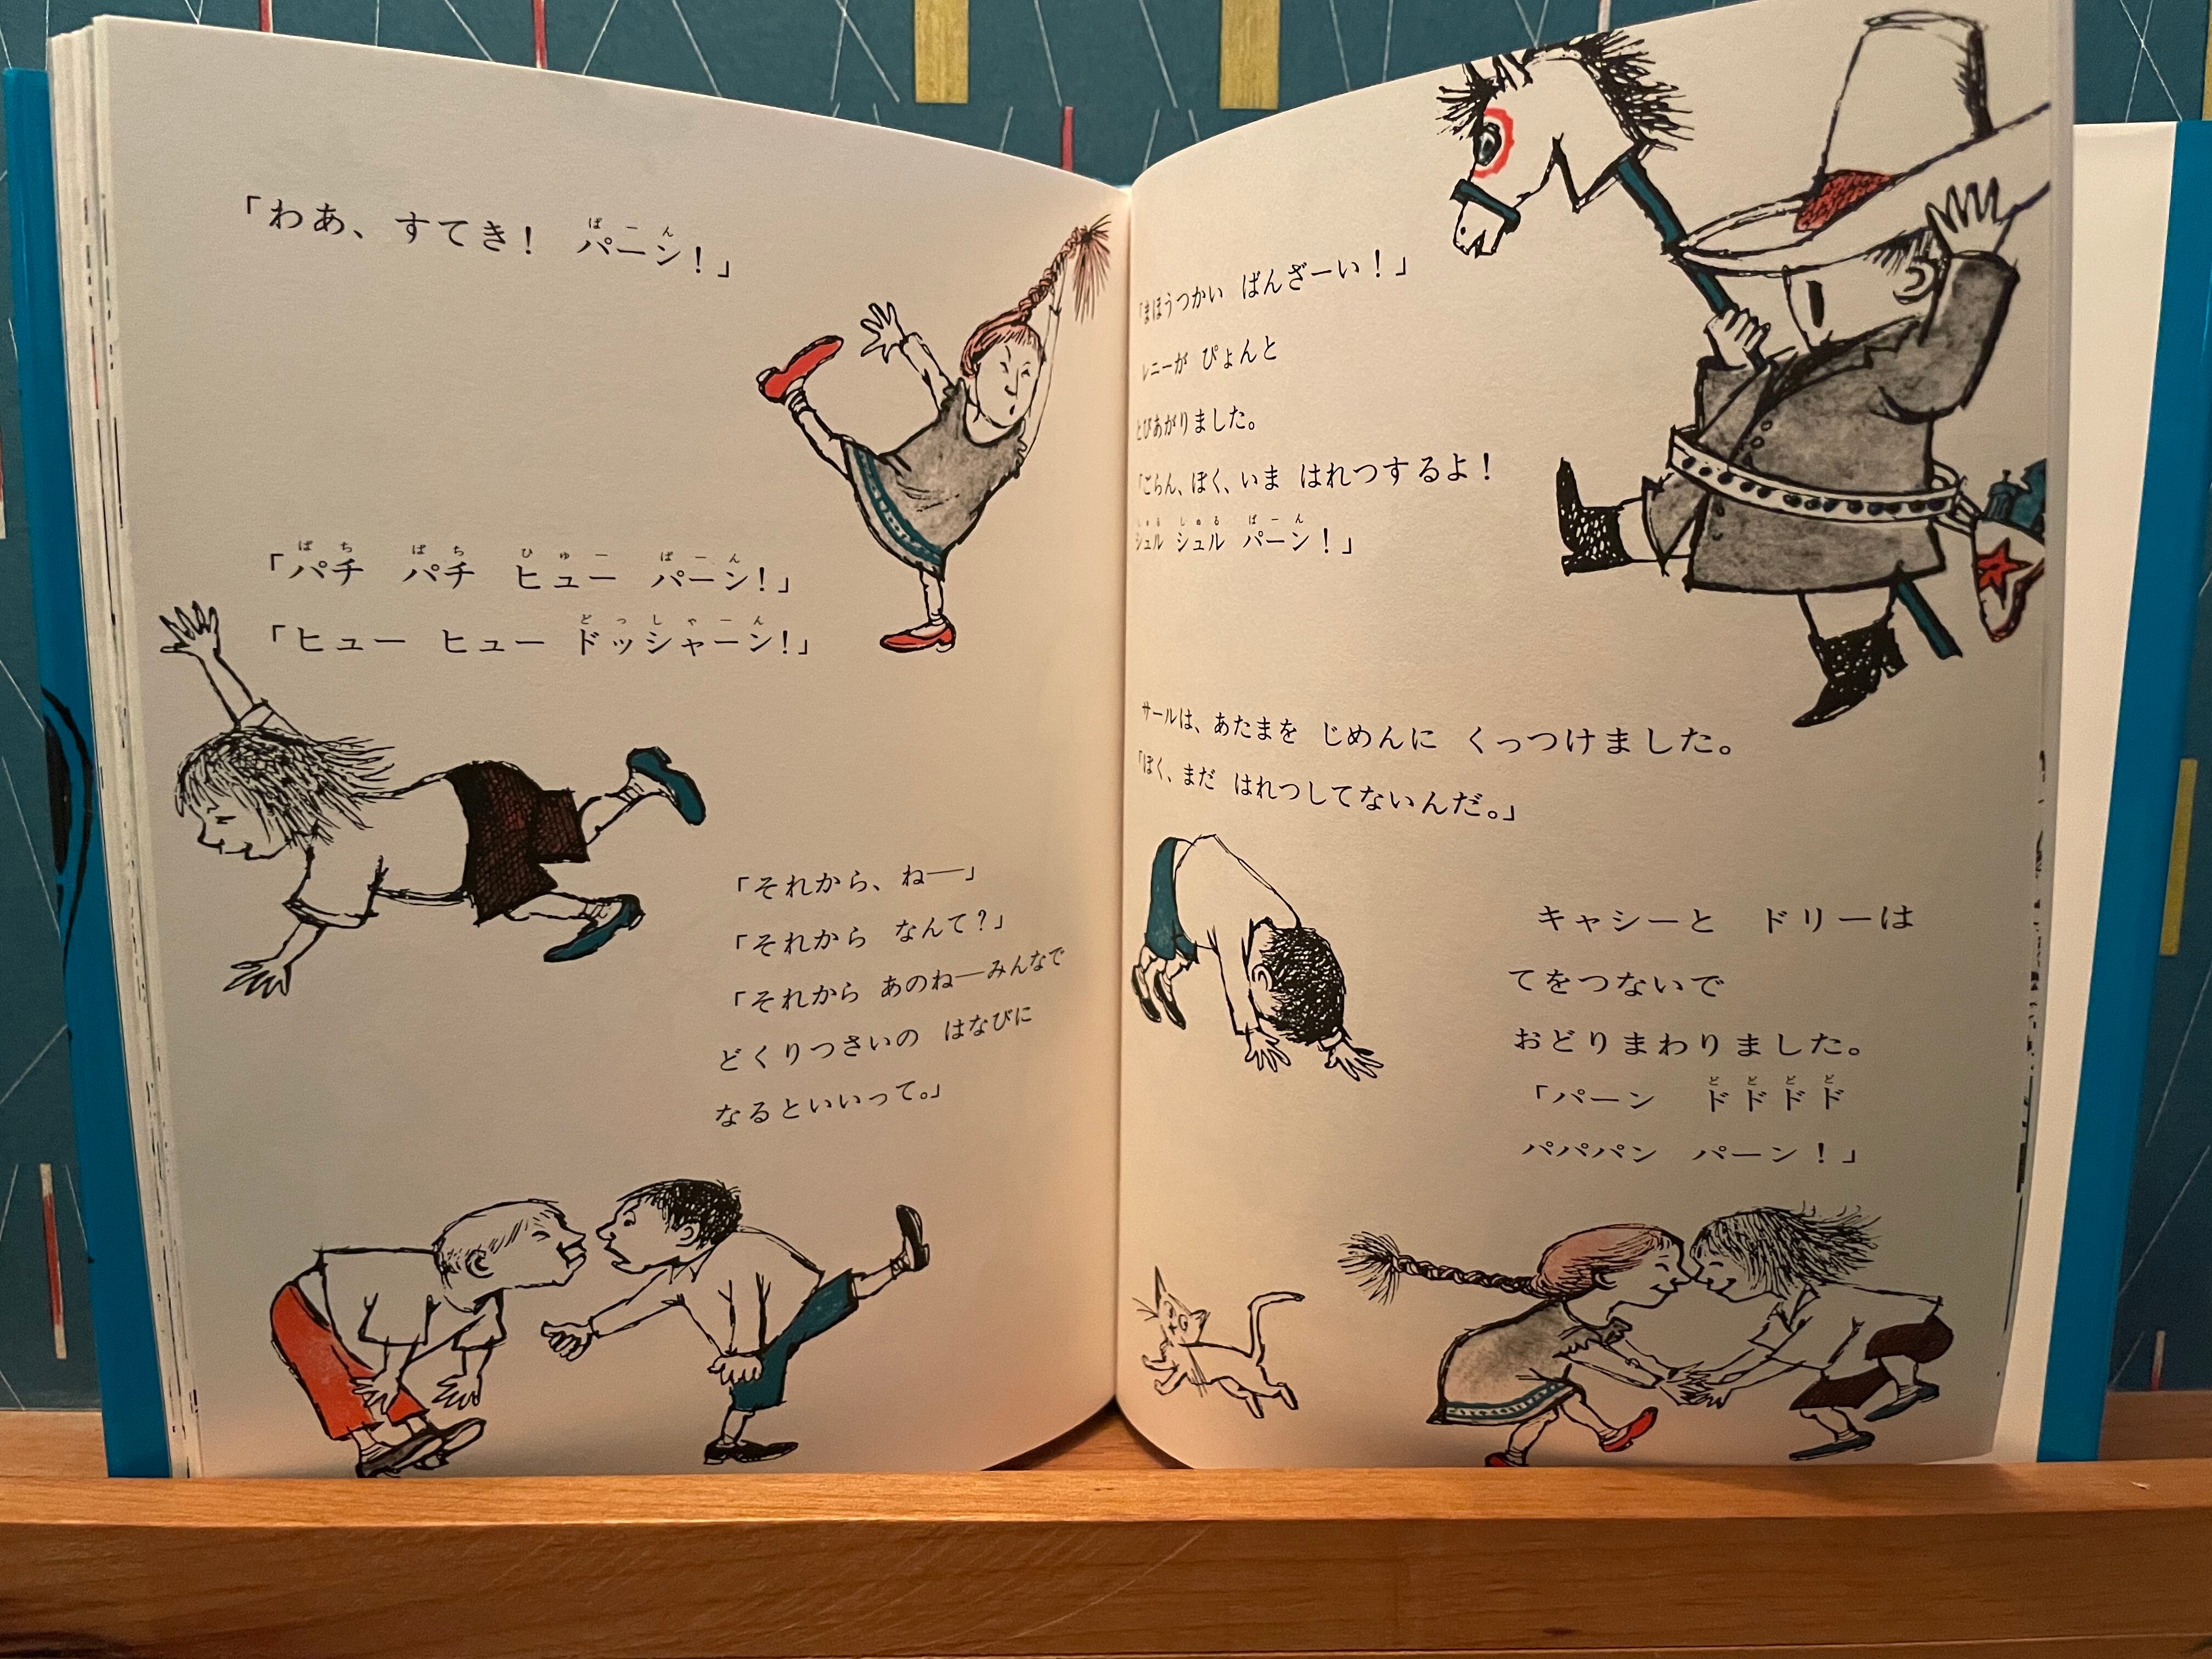 「わあ、すてき！　パーン！」
「パチ　パチ　ヒュー　パーン！」
「ヒュー　ヒュー　ドッシャーン！」
「それから、ね──」
「それから　なんて？」
「それから　あのね──みんなで
どくりつさいの　はなびに
なるといいって。」
「まほうつかい　ばんざーい！」
レニーが　ぴょんと
とびあがりました。
「ごらん、ぼく、いま　はれつするよ！
シュル　シュル　パーン！」
サールは、あたまを　じめんに　くっつけました。
「ぼく、まだ　はれつしてないんだ。」
キャシーと　ドリーは
てをつないで
おどりまわりました。
「パーン　ドドドド
パパパン　パーン！」